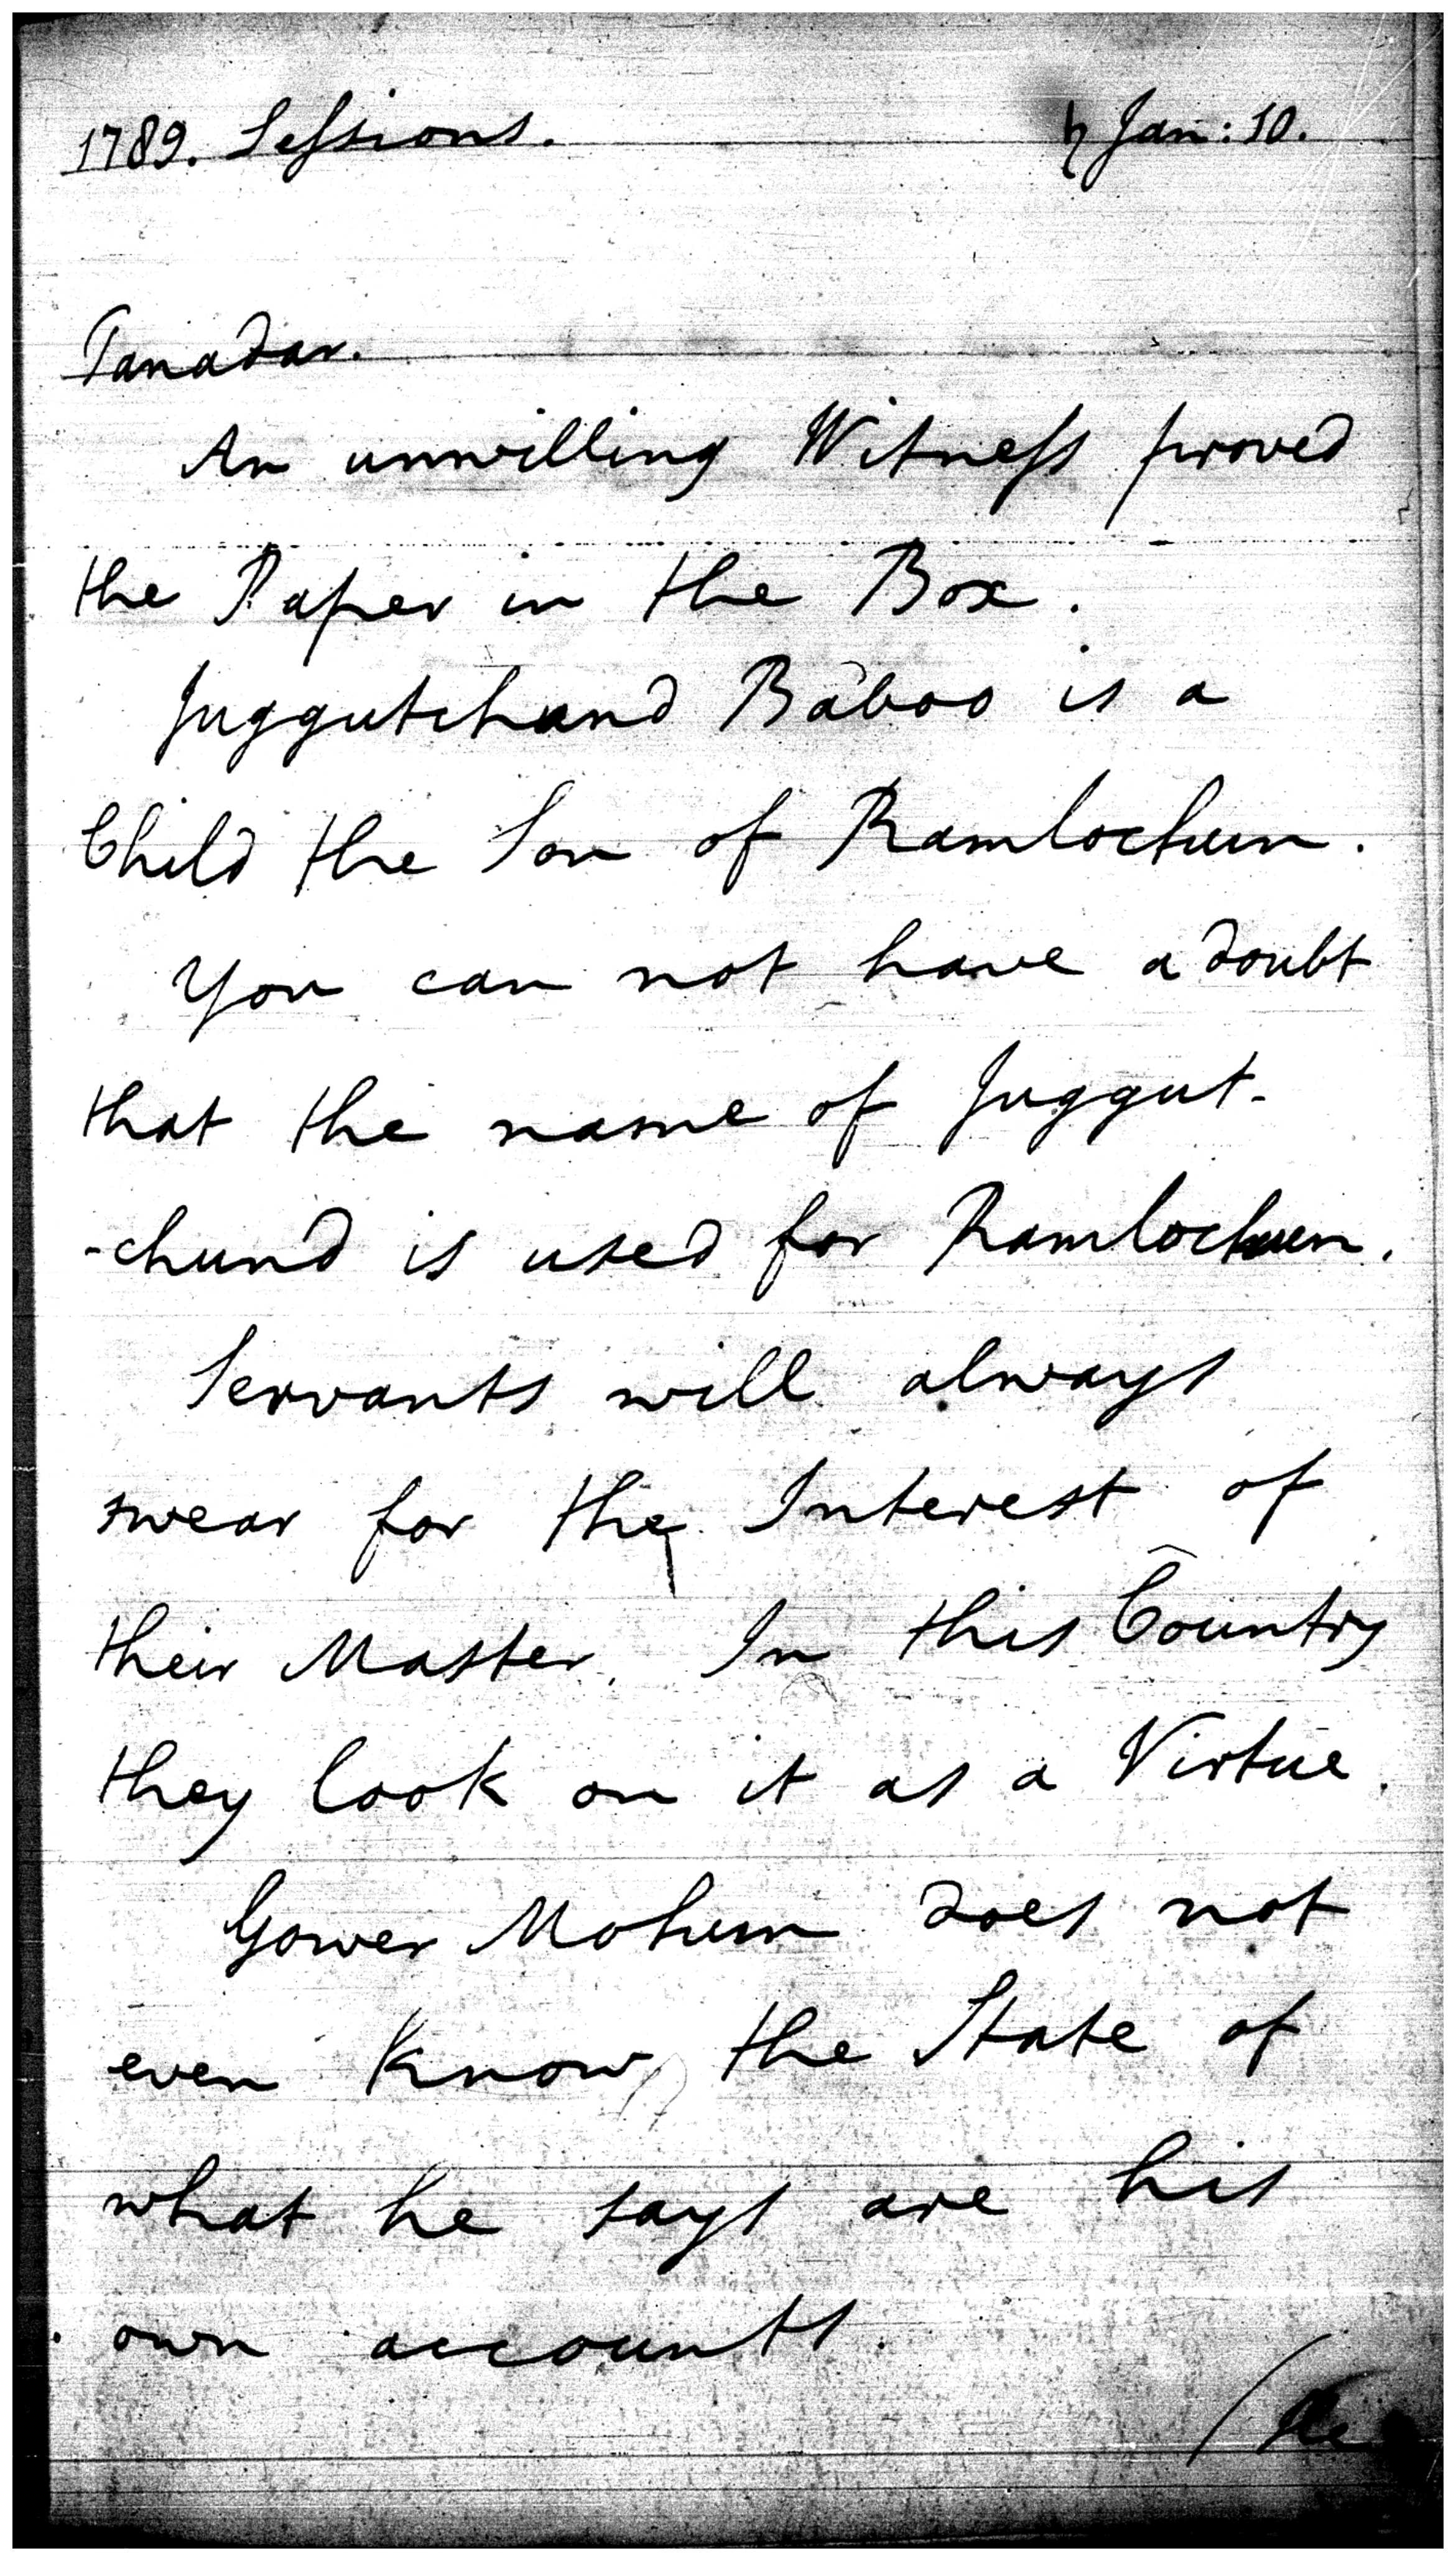 1789. Sessions. ♄ Jan: 10.
Tanadar.
An unwilling Witness proved
the Paper in the Box.
Juggutchund Bâboo is a
Child the Son of Ramlochun.
You can not have a doubt
that the name of Juggut-
-chund is used for Ramlochun.
Servants will always
swear for the Interest of
their Master. In this Country
they look on it as a Virtue.
Gower Mohun does not
even know the State of
what he says are his
own accounts.